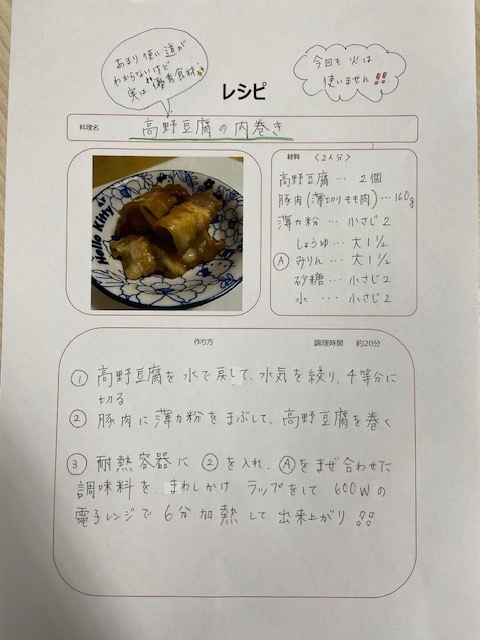 あまり使い道が
わからないけど
実は"優秀食材"
今回も火は
使いません!!
レシピ
料理名
高野豆腐の肉巻き
Hello Kitty
材料 <2人分>
高野豆腐… 2個
豚肉(薄切りもも肉)…160g
薄力粉 … 小さじ2
しょうゆ… 大1 1/2
Ⓐ みりん… 大1 1/2
砂糖… 小さじ2
水 … 小さじ2
作り方 調理時間 約20分
① 高野豆腐を水で戻して、水気を絞り、4等分に
切る
② 豚肉に薄力粉をまぶして、高野豆腐を巻く
③ 耐熱容器に②を入れ、Ⓐをまぜ合わせた
調味料を まわしかけ ラップをして 600Wの
電子レンジで 6分加熱して 出来上がり!!